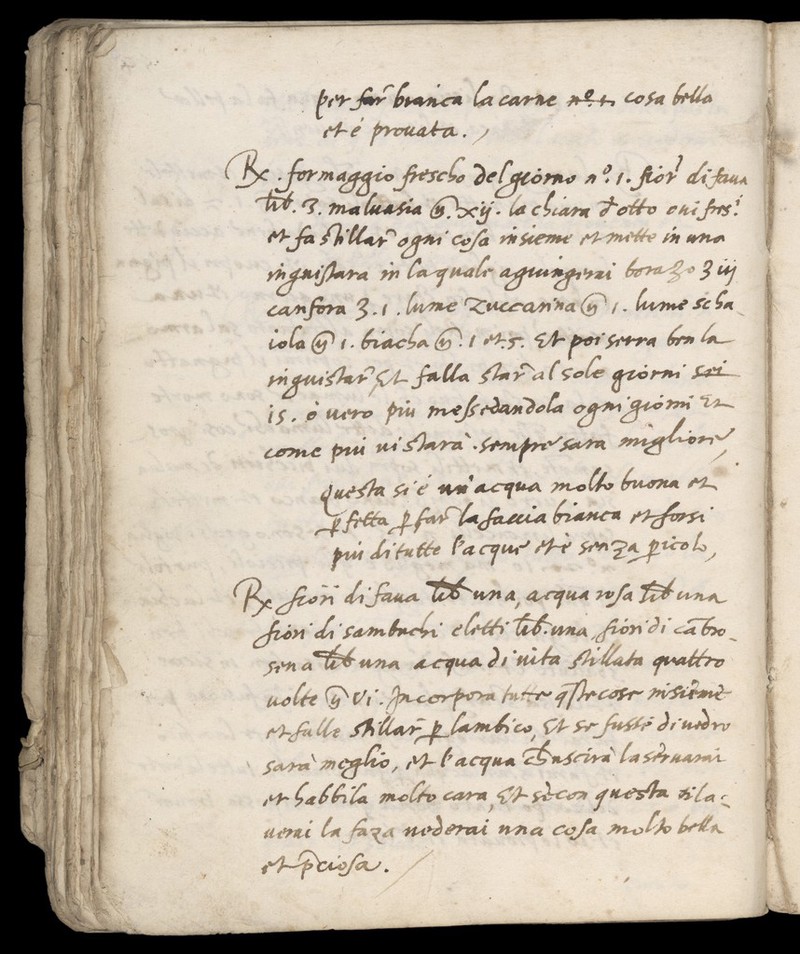 per far̃ bianca la carne nº. 1. cosa bella
et é prouata.
Rx. formaggio frescho del giorno nº. 1. fior̃ di faua
lib. 3. maluasia ℥. xij. la chiara d'otto oui fres.i
et fa stillar̃ ogni cosa insieme et mette in una
inguistara in la quale agiungerai borazo ʒ iij
canfora ʒ. 1. lume zuccarina ℥ 1. lume scha-
iola ℥ 1. biacha ℥. 1 et s. Et poi serra ben la
inguistar̃, Et falla star̃ al sole giorni sei
15. ò vero piu messedandola ogni giorni Et
come piu ui stara. sempre sara migliore,
Questa si é un'acqua molto buona et
p̱fetta p̱ far̃ la faccia bianca et forsi
piu di tutte l'acque et è senza p̱icolo,
Rx fiori di faua lib una, acqua rosa lib una
fiori di sambuchi eletti lib. una, fiori di cãbro-
sena lib una acqua di uita stillata quattro
volte ℥ vi. Incorpora tutte q̃ste cose insieme
et falle stillar̃ p̱ lambico, Et se fusse di vedro
sarà meglio, et l'acqua ch̃ uscirà la seruarai
et habbila molto cara, Et se con questa ti la-
uerai la faza uederai una cosa molto bella
et p̃ciosa.